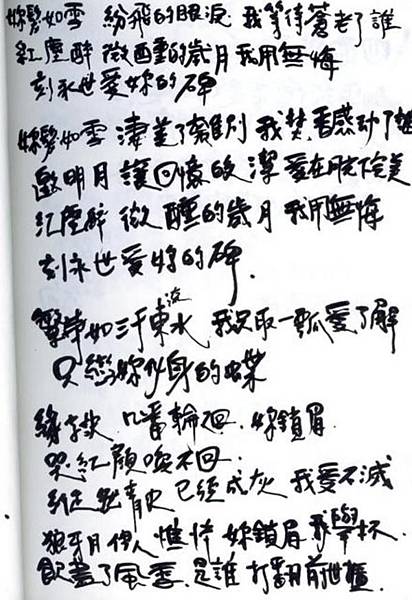 妳髮如雪 紛飛的眼淚 我等待蒼老了誰
紅塵醉 微醺的歲月 我用無悔
刻永世愛妳的碑
妳髮如雪 淒美了離別 我焚香感動了
邀明月 讓回憶皎潔 愛在月光下完美
紅塵醉 微醺的歲月 我用無悔
刻永世愛妳的碑.
繁華如三千東流水 我只取一瓢愛了解
只戀妳化身的蝶
緣字訣 几番輪迴. 妳鎖眉
哭紅顏喚不回.
縱然青史 已經成灰 我愛不滅
狼牙月 伊人 憔悴 妳鎖眉 我舉杯.
飲盡了風雪. 是誰 打翻前世櫃.